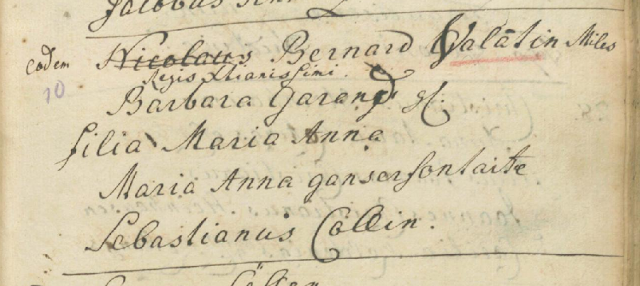 Jacobus
eodem Nicolaus Bernard Valatin Miles
Regis Xtianissimi.
10
Barbara Garand gl.
filia Maria Anna
Maria Anna
Sebastianus Collin.